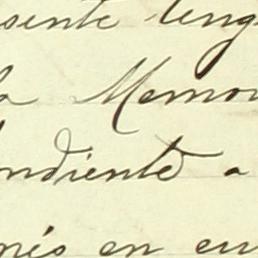 sente teng
la Memo
ndiente a
nés en eu